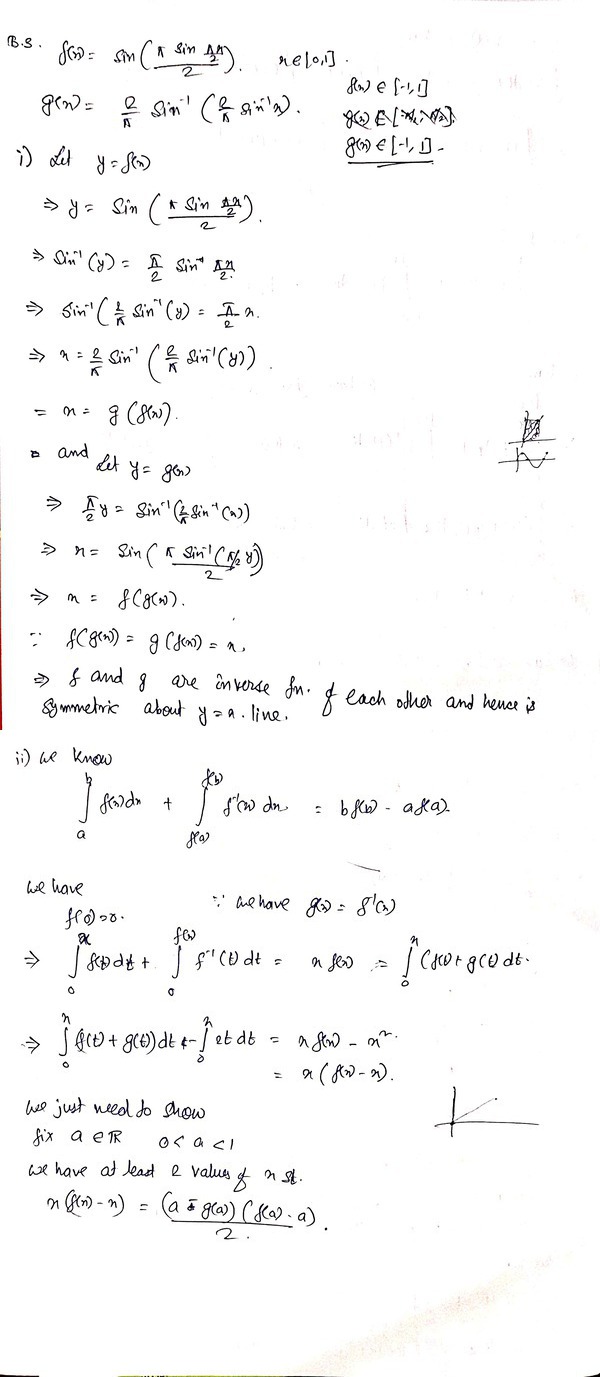 B.3. f(x) = sin(π sin πx/2 / 2). x∈[0,1].
g(x) = 2/π Sin⁻¹(2/π Sin⁻¹x).
f(x) ∈ [-1,1]
g(x) ∈ [-1,1].
i) Let y = f(x)
⇒ y = Sin(π Sin πx/2 / 2).
⇒ Sin⁻¹(y) = π/2 Sin πx/2.
⇒ Sin⁻¹(2/π Sin⁻¹(y) = π/2 x.
⇒ x = 2/π Sin⁻¹(2/π Sin⁻¹(y)).
= x = g(f(x)).
and Let y = g(x)
⇒ π/2 y = Sin⁻¹(2/π Sin⁻¹(x))
⇒ x = Sin(π Sin⁻¹(π/2 y) / 2)
⇒ x = f(g(x)).
∵ f(g(x)) = g(f(x)) = x,
⇒ f and g are inverse fn. of each other and hence is
symmetric about y=x. line.
ii) we know
∫_a^b f(x)dx + ∫_{f(a)}^{f(b)} f⁻¹(x) dx = bf(b) - af(a).
we have
f(0)=0. ∵ we have g(x) = f⁻¹(x)
⇒ ∫_0^x f(t)dt + ∫_0^{f(x)} f⁻¹(t) dt = x f(x) = ∫_0^x (f(t)+g(t) dt.
⇒ ∫_0^x f(t)+g(t))dt - ∫_0^x 2t dt = x f(x) - x²
= x(f(x)-x).
we just need to show
fix a ∈ ℝ 0<a<1
we have at least 2 values of x st.
x(f(x)-x) = (a - g(a))(f(a)-a) / 2.